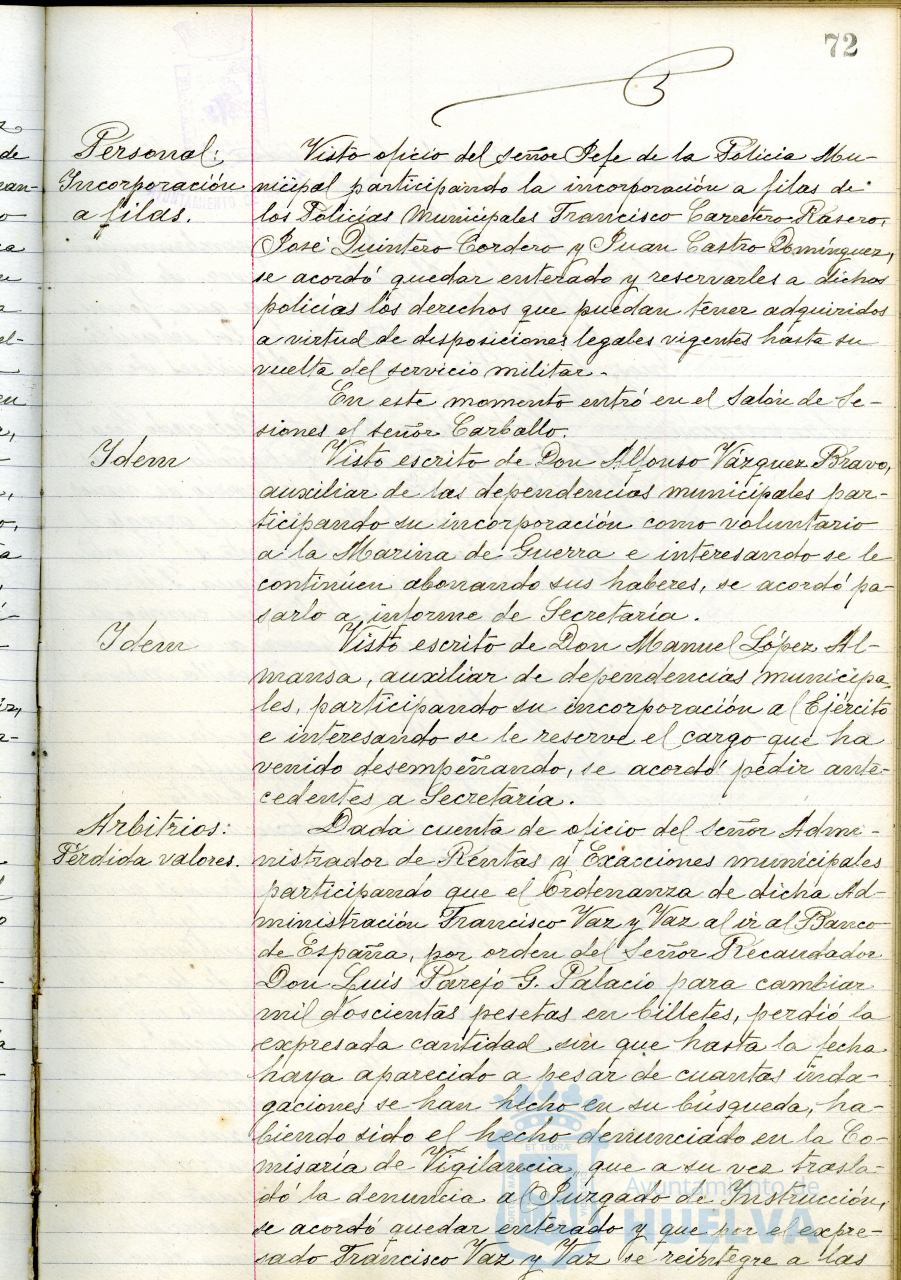 72
Personal:
Incorporación
a filas.
Visto oficio del señor Jefe de la Policía Mu-
nicipal participando la incorporación a filas de
los Policías Municipales Francisco Carretero Rasero,
José Quintero Cordero y Juan Castro Domínguez,
se acordó quedar enterado y reservarles a dichos
policías los derechos que puedan tener adquiridos
a virtud de disposiciones legales vigentes hasta su
vuelta del servicio militar.
En este momento entró en el Salón de Se-
siones el señor Carballo.
Idem
Visto escrito de Don Alfonso Vázquez Bravo,
auxiliar de las dependencias municipales par-
ticipando su incorporación como voluntario
a la Marina de Guerra e interesando se le
continuen abonando sus haberes, se acordó pa-
sarlo a informe de Secretaría.
Idem
Visto escrito de Don Manuel López Al-
mansa, auxiliar de dependencias municipa-
les, participando su incorporación al Ejército
e interesando se le reserve el cargo que ha
venido desempeñando, se acordó pedir ante-
cedentes a Secretaría.
Arbitrios:
Pérdida valores.
Dada cuenta de oficio del señor Admi-
nistrador de Rentas y Exacciones municipales
participando que el Ordenanza de dicha Ad-
ministración Francisco Vaz y Vaz al ir al Banco
de España, por orden del Señor Recaudador
Don Luis Parejo G. Palacio para cambiar
mil doscientas pesetas en billetes, perdió la
expresada cantidad sin que hasta la fecha
haya aparecido a pesar de cuantas inda-
gaciones se han hecho en su búsqueda, ha-
biendo sido el hecho denunciado en la Co-
misaría de Vigilancia, que a su vez trasla-
dó la denuncia al Juzgado de Instrucción,
se acordó quedar enterado y que por el expre-
sado Francisco Vaz y Vaz se reintegre a las
Ayuntamiento de
HUELVA